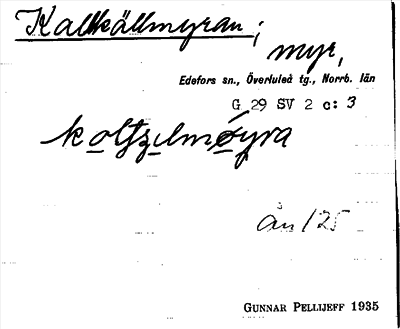 Kallkällmyran;
myr,
Edefors sn., Överluleå tg., Norrb. län
G 29 SV 2 c: 3
ån 125
GUNNAR PELLIJEFF 1935